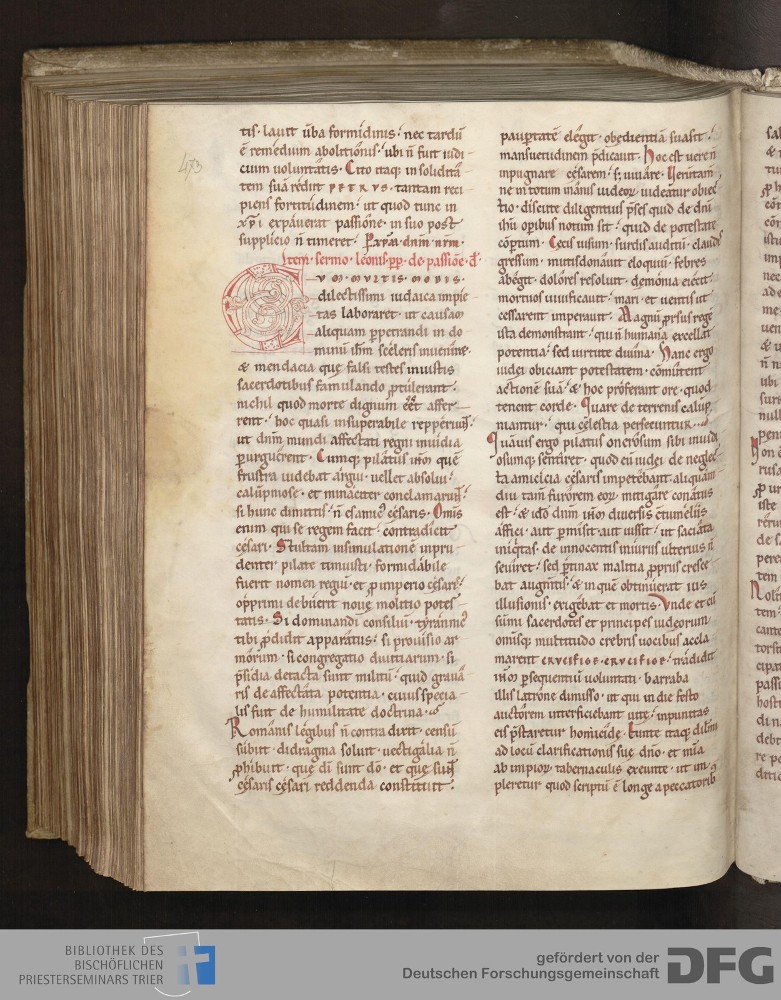 473
tis· lauit ũba formidinis· nec tardũ
ẽ remedium abolitionis· ubi ñ fuit iudi-
cium uoluntatis· Cito itaq; in soliditã-
tem suã redut PETRUS· tantam reci-
piens fortitudinem· ut quod tunc in
xp̃i expauerat passione· in suo post
supplicio ñ timeret· P xp̃m dñm nr̃m·
Item· sermo· leonis· pp̃· de· passiõe· d̃·
CUM MULTIS MODIS·
dilectissimi iudaica impie-
tas laboraret· ut causam
aliquam ppetrandi in do-
minũ ihm̃ sceleris inuenire·
& mendacia que falsi testes iniustis
sacerdotibus famulando ptulerant·
nichil quod morte dignum eēt affer-
rent· hoc quasi insuperabile reppererũt·
ut dñm mundi affectati regni inuidia
purguerent· Cumq; pilatus ihm̃ quẽ
frustra uidebat argui· uellet absolui·
calũpniose· et minaciter conclamarũt·
si hunc dimittis· ñ es amic᾿ cesaris· Omis
enim qui se regem facit· contradicit
cesari· Stultam insimulationẽ inpru-
denter pilate timuisti· formidabile
fuerit nomen regiũ· et p imperio cesaris
opprimi debuerit noue molitio potes-
tatis· Si dominandi consiliũ· tyrannic᾿
tibi pdidit apparatus· si prouisio ar-
morum· si congregatio diuitiarum· si
psidia detecta sunt militũ· quid grauã-
ris de affectata potentia· cuius specia-
lis fuit de humilitate doctrina·
Romanis legibus ñ contra dixit· censũ
subiit· didragma soluit· uectigalia ñ
phibuit· que di sunt dõ· et que sunt
cesaris cesari reddenda constituit·
paupertatẽ elegit· obedientiã suasit·
mansuetudinem pdicauit· Hoc est uere ñ
inpugnare cesarem· s; iuuare· Uerũtam̃
ne in totum inanis iudeor̃ uideatur obiec-
tio· discute diligentius pses quid de dñi
ihũ opibus notum sit· quid de potestate
cõptum· Cecis uisum· surdis auditũ· claudis
gressum· mutis donauit eloquiũ· febres
abegit· dolores resoluit· demonia eiecit·
mortuos uiuificauit· mari· et uentis ut
cessarent imperauit· Magnũ prsus rege
ista demonstrant· qui ñ humana excellat
potentia· sed uirtute diuina· Hanc ergo
iudei obiciant potestatem· comutent
actionẽ suã· & hoc proferant ore· quod
tenent corde· Quare de terrenis calũp-
niantur· qui celestia persecuntur·
Quãuis ergo pilatus onerosum sibi inuidi-
osumq; sentiret· quod eũ iudei de neglec-
ta amicicia cesaris impetebant· aliquam-
diu tam̃ furorem eor̃ mitigare conatus
est· & ido dñm ihm̃ diuersis cũtumeliis
affici· aut pmisit· aut iussit· ut saciata
iniqtas· de innocentis iniuriis ulterius ñ
seuiret· sed ptinax malitia ppriis cresce-
bat augmtis· & in que obtinuerat ius
illusionis· exigebat et mortis· Unde et cũ
sũmi sacerdotes et principes iudeorum
omisq; multitudo crebris uocibus accla-
marent CRUCIFIGE· CRUCIFIGE· tradidit
ihm̃ psequentiũ uoluntati· barraba
illis latrone dimisso· ut qui in die festo
auctorem interficiebant uite· inpunitas
eis pstaretur homicide· Eunte itaq; dilm̃i
ad locũ clarificationis sue dño· et mĩa
ab impior̃ tabernaculis exeunte· ut im-
pleretur quod scriptũ ẽ longe a peccatorib᾿
BIBLIOTHEK DES
BISCHÖFLICHEN
PRIESTERSEMINARS TRIER
gefördert von der
Deutschen Forschungsgemeinschaft
DFG